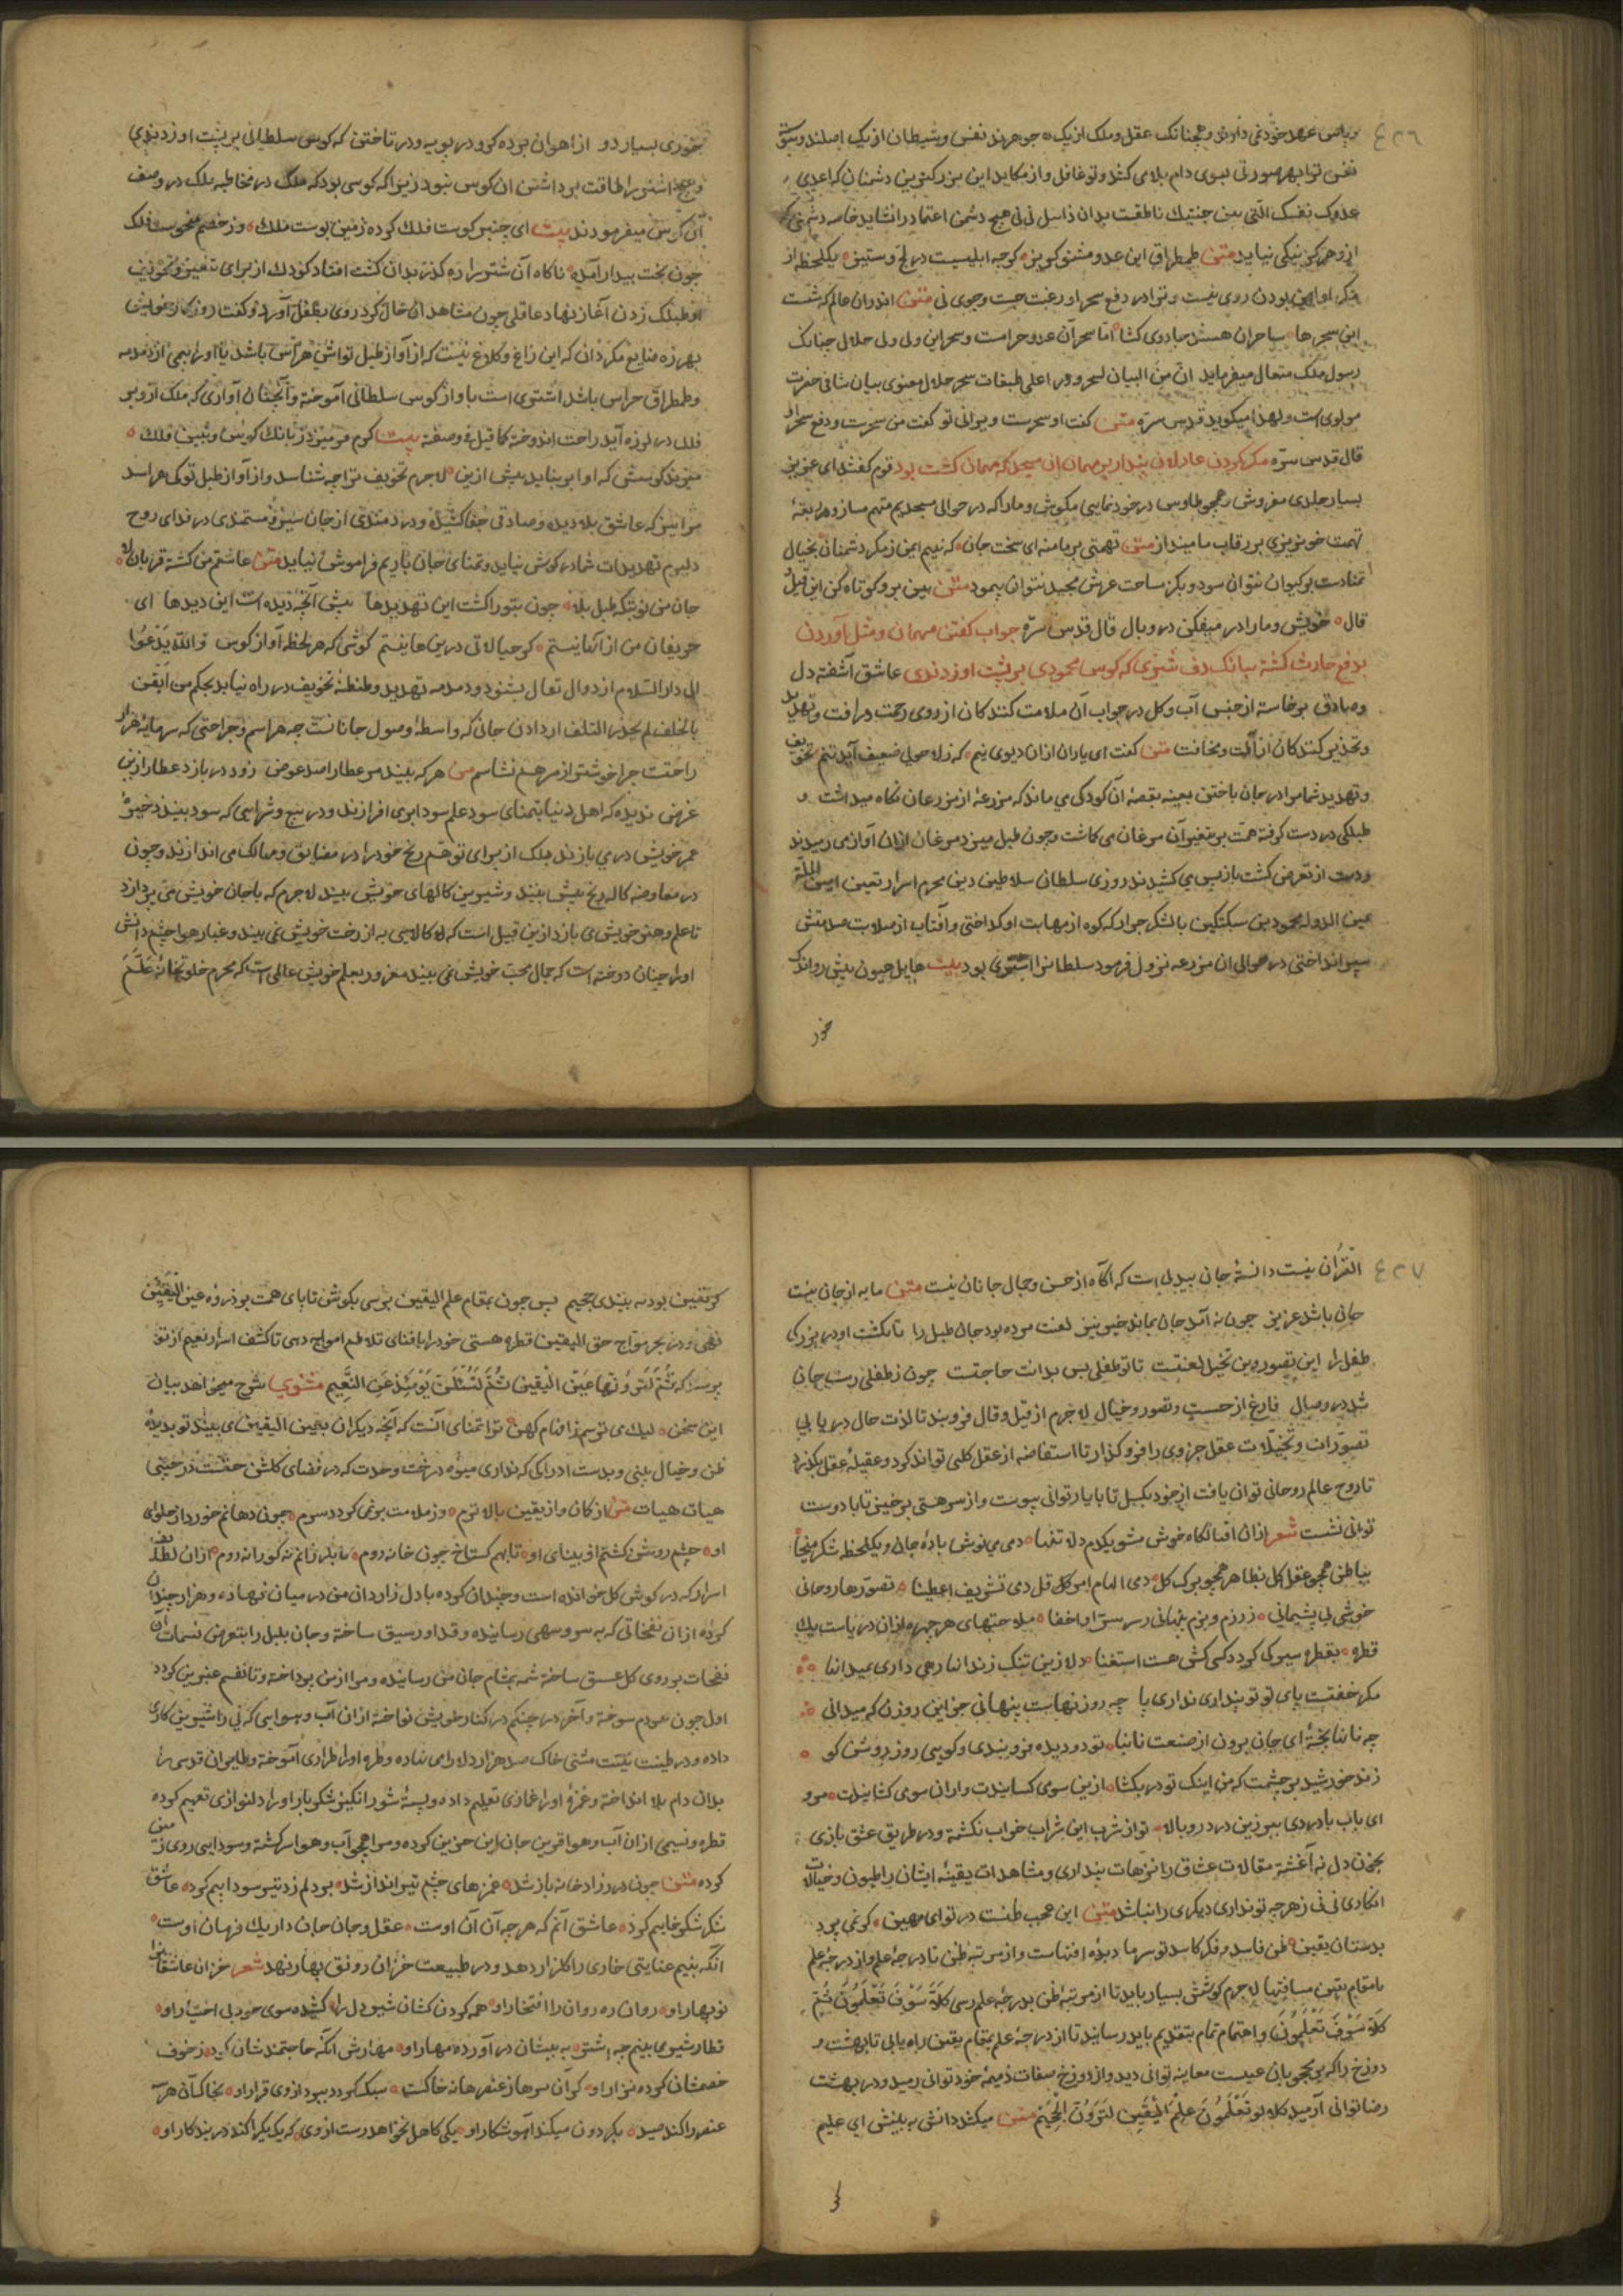 ٤٢٦
و پاس عهد خود نمی دارند و همچنانک عقل و ملک از یک جوهرند نفس و شیطان از یک اصلند و پیوسته
نفس ترا بهر صورتی بسوی دام بلا می کشد و تو غافل و از مکاید این بزرکترین دشمنان که اعدی
عدوک نفسک التی بین جنبیک ناطقست بدان ذاهل نی نی هیچ دشمن اعتماد را نشاید خاصه دشمنی که
ازو هرکز نیکی نیاید متن طمطراق این عدو مشنو کریز کوچه ابلیسست در لج و ستیز یکلحظه از
مکر او ایمن بودن روی نیست و ترا در دفع سحر او رغبت جست و جوی نی متن اندران عالم که هست
این سحرها ساحران هستند جادوی کشا اما سحر آن عدو حرامست و سحر این ولی ولی حلال چنانک
رسول ملک متعال میفرماید ان من البیان لسحرا و در اعلی طبقات سحر حلال معنوی بیان شافی حضرت
مولوی است ولهذا میکوید قدس سره متن کفت او سحرست و ویرانی تو کفت من سحرست و دفع سحر او
قال قدس سره مکرر کردن عاذلان پند را بر مهمان ان مسجد که مهمان کشت بود قوم کفتند ای عزیز
بسیار جلدی مفروش و همچو طاوس در خودنمایی مکوش و ما را که در حوالی مسجدیم متهم مساز و هر ربقهٔ
تهمت خونریزی بر رقاب ما مینداز متن تهمتی بر ما منه ای سخت جان که نییم ایمن ز مکر دشمنان بخیال
تمنا دست بر کیوان نتوان سود و بکز مساحت عرش مجید نتوان پیمود متن هین برو کوتاه کن این قیل و
قال خویش و ما را در میفکن در وبال قال قدس سره جواب کفتن مهمان و مثل آوردن
بدفع حارث کشت ببانک دف شتری که کوس محمودی بر پشت او زدندی عاشق آشفته دل
و صادق برخاسته از جنس آب و کل در جواب آن ملامت کنندکان از روی رحمت و رافت و تهدید
و تحذیر کنندکان از آفت و مخافت متن کفت ای یاران ازان دیوی نیم که ز لا حولی ضعیف آید پیم تخویف
و تهدید شما مرا در جان باختن بعینه بقصهٔ آن کودکی می ماند که مزرعهٔ از مزرعان نکاه میداشت و
طبلکی در دست کرفته همت بر تنفیر آن مرغان می کاشت و چون طبل میزد مرغان ازان آواز می رمیدند
و دست از تعرض کشت باز پس می کشیدند روزی سلطان سلاطین دین محرم اسرار تعین امین الملة
یمین الدوله محمود بن سبکتکین با لشکر جرار که کوه از مهابت او کداختی و آفتاب از صلابت صدمتش
سپر انداختی در حوالی ان مزرعه نزول فرمود سلطانرا اشتری بود بیت هایل هیون پیش رو اندک
خور
بخوری بسیار دو از اهوان برده کرو در پویه و در تاختن که کوس سلطانی بر پشت او زدندی
و هیچ اشتر را طاقت برداشتن ان کوس نبود زیرا که کوسی بود که ملک در مخاطبه ملک در وصف
آن کوس میفرمودند بیت ای چنبر کوست فلک کرده زمین بوست ملک وز خصم منحوست فلک
چون بخت بیدار آمده ناکاه آن شتر را ره کذر بدان کشت افتاد کودک از برای تنفیر و تخویف
او طبلک زدن آغاز نهاد عاقلی چون مشاهد ان حال کرد روی بطفل آورد و کفت روزکار خویش
بهرزه ضایع مکردان که این زاغ و کلاغ نیست که از آواز طبل تواش هراس باشد یا او را بیمی از دمدمه
و طمطراق حراس باشد اشتری است باواز کوس سلطانی آموخته و آنچنان آوازی که ملک ازو بر
فلک در لرزه آید راحت اندوخته کما قیل فی وصفه بیت کرم فرمیزد ز بانک کوس و بین فلک
میزند کوسش که او ابر نماید بیش ازین لاجرم تخویف ترا چه شناسد و از آواز طبل تو کی هراسد
مرا نیز که عاشق بلا دیده و صادقی جفا کشیده و دردمندی از جان سیر و مستمندی در ندای روح
دلیرم تهدیدات شما در کوش نیاید و تمنای جان بازیم فراموش نیاید متن عاشقم من کشته قربان لا
جان من نوبتکه طبل بلا چون بتوراکشت این تهدیدها پیش آنچه دیده است این دیدها ای
حریفان من از آنها نیستم کز خیالاتی درین ها نیستم کوشی که هر لحظه آواز کوس والله یدعوا
الی دار السلام از دوال تعال بشنود و دمدمه تهدید و طنطنهٔ تخویف در راه نیابد بحکم من ایقن
بالخلف لم یحذر التلف از دادن جانی که واسطهٔ وصول جانانست چه هراسم و جراحتی که سرمایهٔ هزار
راحتست چرا خوشتر از مرهم نشناسم متن هر که بیند مر عطا را صد عوض زود در بازد عطا را زین
غرض ندیدهٔ که اهل دنیا بتمنای سود علم سودا برمی افرازند و در بیع و شرایی که سود بینند ذخیرهٔ
عمر خویش در می بازند بلک از برای توهم ربح خود را در مضایق و مهالک می اندازند و چون
در معاوضه کاله ربح بیش بینند و شیرین کالهای خویش بیند لاجرم که با جان خویش می پردازد
تا علم و هنر خویش می بازد ازین قبیل است که او کالایی به از رخت خویش نمی بیند و غبار هوا چشم دانش
او را چنان دوخته است که جمال محبت خویش نمی بیند مغرور بعلم خویش عالمی است که محرم خلوتخانهٔ علم
٤٢٧
القرآن نیست دانستهٔ جان بیدلی است که آکاه از حسن و جمال جانان نیست متن مایه از جان نیست
جانی باشد عزیز چون به آمد جان نماند خیز تیز لعبت مرده بود جان طفل را تا نکشت او در بزرکی
طفل زا این تصور وین تخیل لعبتست تا تو طفلی پس بدانت حاجتست چون ز طفلی رست جان
شد در وصال فارغ از حسست و تصور و خیال لاجرم از قیل و قال فرو بند تا لذت حال دریابی
تصورات و تخیلات عقل جزوی را فرو کذار تا استفاضه از عقل کلی تواند کرد و عقیلهٔ عقل بکذرد
تا روح عالم روحانی توان یافت از خود بکسل تا با یار توانی پیوست و از سر هستی برخیز تا با دوست
توانی نشست شعر ازان اقبالکاه خوش مشو یکدم دلا تنها دمی می نوش بادهٔ جان و یکلحظه شکر میخا
بباطن همچو عقل کل بظاهر همچو برک کل دمی الهام امر کل دمی تشریف اعطینا تصورها روحانی
خوشی بی پشیمانی ز رزم و بزم پنهانی ز سر سر او اخفا ملاحتهای هر چهره ازان دریاست یک
قطره بقطره سیر کی کردد کسی کش هست استسقا دلا زین تنک زندانها رهی داری بمیدانها
مکر خفتست پای تو تو پنداری نداری پا چه روزنهاست پنهانی جز این روزن که میدانی
چه نانها پختهٔ ای جان برون از صنعت نانبا تو دو دیده فرو بندی و کویی روز روشن کو
زند خورشید بر چشمت که من اینک تو در بکشا ازین سوی کشانیدت و ازان سوی کشانیدت مرو
ای ناب با دردی بپر زین درد رو بالا تو از شرب این شراب خواب نکشتهٔ و در طریق عشق بازی
بخون دل نه آغشتهٔ مقالات عشاق را ترهات پنداری و مشاهدات یقینهٔ ایشان را ظنون و خیالات
انکاری نی نی ز هر چه تو نداری دیکری را نباشد متن این عجب ظنست در تو ای مهین کو نمی پرد
ببستان یقین ظن فاسد و فکر کاسد تو سرمایه دیدهٔ افتهاست و از مرتبهٔ ظن تا درجهٔ علم و از درجهٔ علم
تا مقام یقین مسافتها لاجرم کوشش بسیار باید تا از مرتبهٔ ظن بدرجهٔ علم رسی کلا سوف تعلمون ثم
کلا سوف تعلمون و اهتمام تمام بتقدیم باید رسانید تا از درجهٔ علم بمقام یقین راه یابی تا بهشت و
دوزخ را که بر محجوبان غیبست معاینه توانی دید و از دوزخ صفات ذمیمهٔ خود توانی رمید و در بهشت
رضا توانی آرمید کلا لو تعلمون علم الیقین لترون الجحیم متن میکشد دانش به بینش ای علیم
کر یقین بودی بدیدندی جحیم پس چون بمقام علم الیقین برسی بکوش تا پای همت بر ذروهٔ عین الیقین
نهی و در بحر مواج حق الیقین قطرهٔ هستی خود را بافنای تلاطم امواج دهی تا کشف اسرار نعیم از تو
پرسند که ثم لترونها عین الیقین ثم لتسئلن یومئذ عن النعیم مثنوی شرح میخواهد بیان
این سخن لیک می ترسم ز افهام کهن ترا تمنای آنست که آنچه دیکران بعین الیقین می بینند تو بدیدهٔ
ظن و خیال بینی و بدست ادراکی که نداری میوهٔ درخت وحدت که در فضای کلشن حقست درچینی
هیهات هیهات متن از کمان و از یقین بالاترم وز ملامت بر نمی کردد سرم چون دهانم خورد از حلوای
او چشم روشن کشتم و بینای او تا نهم کستاخ چون خانه روم پا نلرزانم نه کورانه روم ازان لطف
اسرار که در کوش کل خوانده است و خندان کرده با دل زار دان من در میان نهاده و هزار چندان
کرده ازان نفخاتی که به سرو سهی رسانیده و قد او رسیق ساخته و جان بلبل را بتعرض نسمات آن
نفحات بر روی کل عشق ساخته شمه بمشام جان من رسانیده و مرا از من پرداخته و تا نفسم عنبرین کردد
اول چون عودم سوخته و آخر در چنکم در کنار خویش نواخته ازان آب و هوایی که نی را شیرین کاری
داده و در طینت نیتت مشتی خاک صد هزار دلارامی نهاده و طره او را طراری آموخته و طایران قدسی را
بدان دام بلا انداخته و غمزهٔ او را غمازی تعلیم داده و پستهٔ شور انکیز شکربار او را دلنوازی تفهیم کرده
قطره و نسیمی ازان آب و هوا قرین جان این حزین کرده و مرا همچو آب و هوا سرکشته و سودایی روی زمین
کرده متن چون در زرادخانه باز شد غمزهای چشم تیرانداز شد بر دلم زد تیر و سوداییم کرد عاشق
شکر شکرخاییم کرد عاشق آنم که هر چه آن آن اوست عقل و جان جان داریک فرمان اوست
آنکه بنیم عنایتی خاری را کلزار دهد و در طبیعت خزان رونق بهار نهد شعر خزان عاشقانرا
نوبهار او روان ره روان را افتخار او همه کردن کشان شیردل را کشیده سوی خود بی اختیار او
قطار شیر می بینم چه اشتر به بینشان در آورده مهار او مهارش آنکه حاجتمندشان کرد ز خوف
خصمشان کرده نزار او کران سرها ز عنصرهای خاکست سبک کردد ببرد از وی قرار او بخاک آن هر سه
عنصر را کند صید بکردون میکند آهو شکار او یکی کاهل نخواهد رست از وی که یک یک را کند در بند کار او